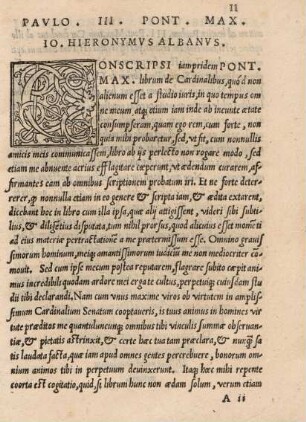 II
PAVLO. III. PONT. MAX.
IO. HIERONYMVS ALBANVS.
CONSCRIPSI iampridem PONT.
MAX. librum de Cardinalibus, quòd non
alienum esset a studio iuris, in quo tempus om
ne meum atq; otium iam inde ab ineunte ætate
consumpseram, quam ego rem, cum forte, non
quia mihi probaretur, sed, vt fit, cum nonnullis
amicis meis communicassem, libro ab ijs perlecto non rogare modo, sed
etiam me abnuente acrius efflagitare cœperunt, vt ædendum curarem, af-
firmantes eam ab omnibus scriptionem probatum iri. Et ne forte deter-
rerer, quod nonnulla etiam in eo genere & scripta iam, & ædita extarent,
dicebant hoc in libro cum illa ipsa, quæ alij attigissent, videri sibi subti-
lius, & diligentius disputata, tum nihil prorsus, quod alicuius esset momenti
ad eius materiæ pertractationem a me prætermissum esse. Omnino grauis
simorum hominum, meiq; amantissimorum iudicia me non mediocriter co
mouit. Sed cum ipse mecum postea reputarem, flagrare subito cœpit ani-
mus incredibili quodam ardore mei erga te cultus, perpetuiq; cuiusdam stu
dij tibi declarandi. Nam cum vnus maxime viros ob virtutem in amplis-
simum Cardinalium Senatum cooptaueris, is tuus animus in homines vir
tute præditos me quantulumcunq; omnibus tibi vinculis summæ obseruan-
tiæ, & pietatis astrinxit, & certe hæc tua tam præclara, & nunquam sa
tis laudata facta, quæ iam apud omnes gentes percrebuere, bonorum om-
nium animos tibi in perpetuum deuinxerunt. Itaq; hæc mihi repente
coorta est cogitatio, quòd, si librum hunc non ædam solum, verum etiam
A ii